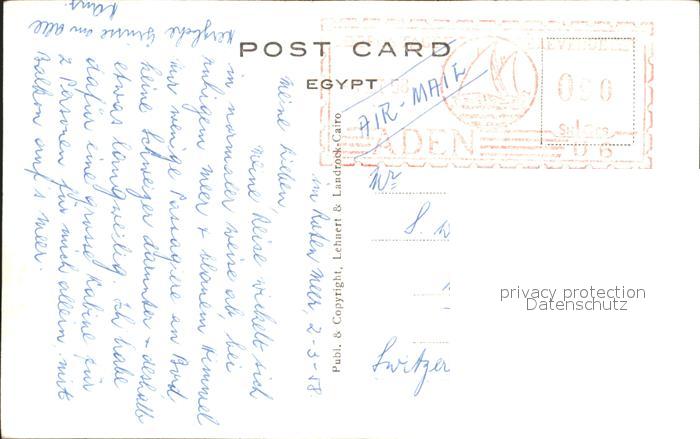 POST CARD
EGYPT
AIR-MAIL
ADEN
090
D 6
Publ. & Copyright, Lehnert & Landrock-Cairo
im Roten Meer, 2-3-58
Meine Lieben,
Meine Reise wickelt sich
in normaler Weise ab, bei
ruhigem Meer + blauem Himmel
nur wenige Passagiere an Bord
keine Schweizer darunter + deshalb
etwas langweilig. Ich habe
dafür eine grosse Kabine für
2 Personen für mich allein, mit
Balkon auf's Meer.
Herzliche Grüsse an alle
Hans.
Mr
S. W
Switzer
privacy protection
Datenschutz